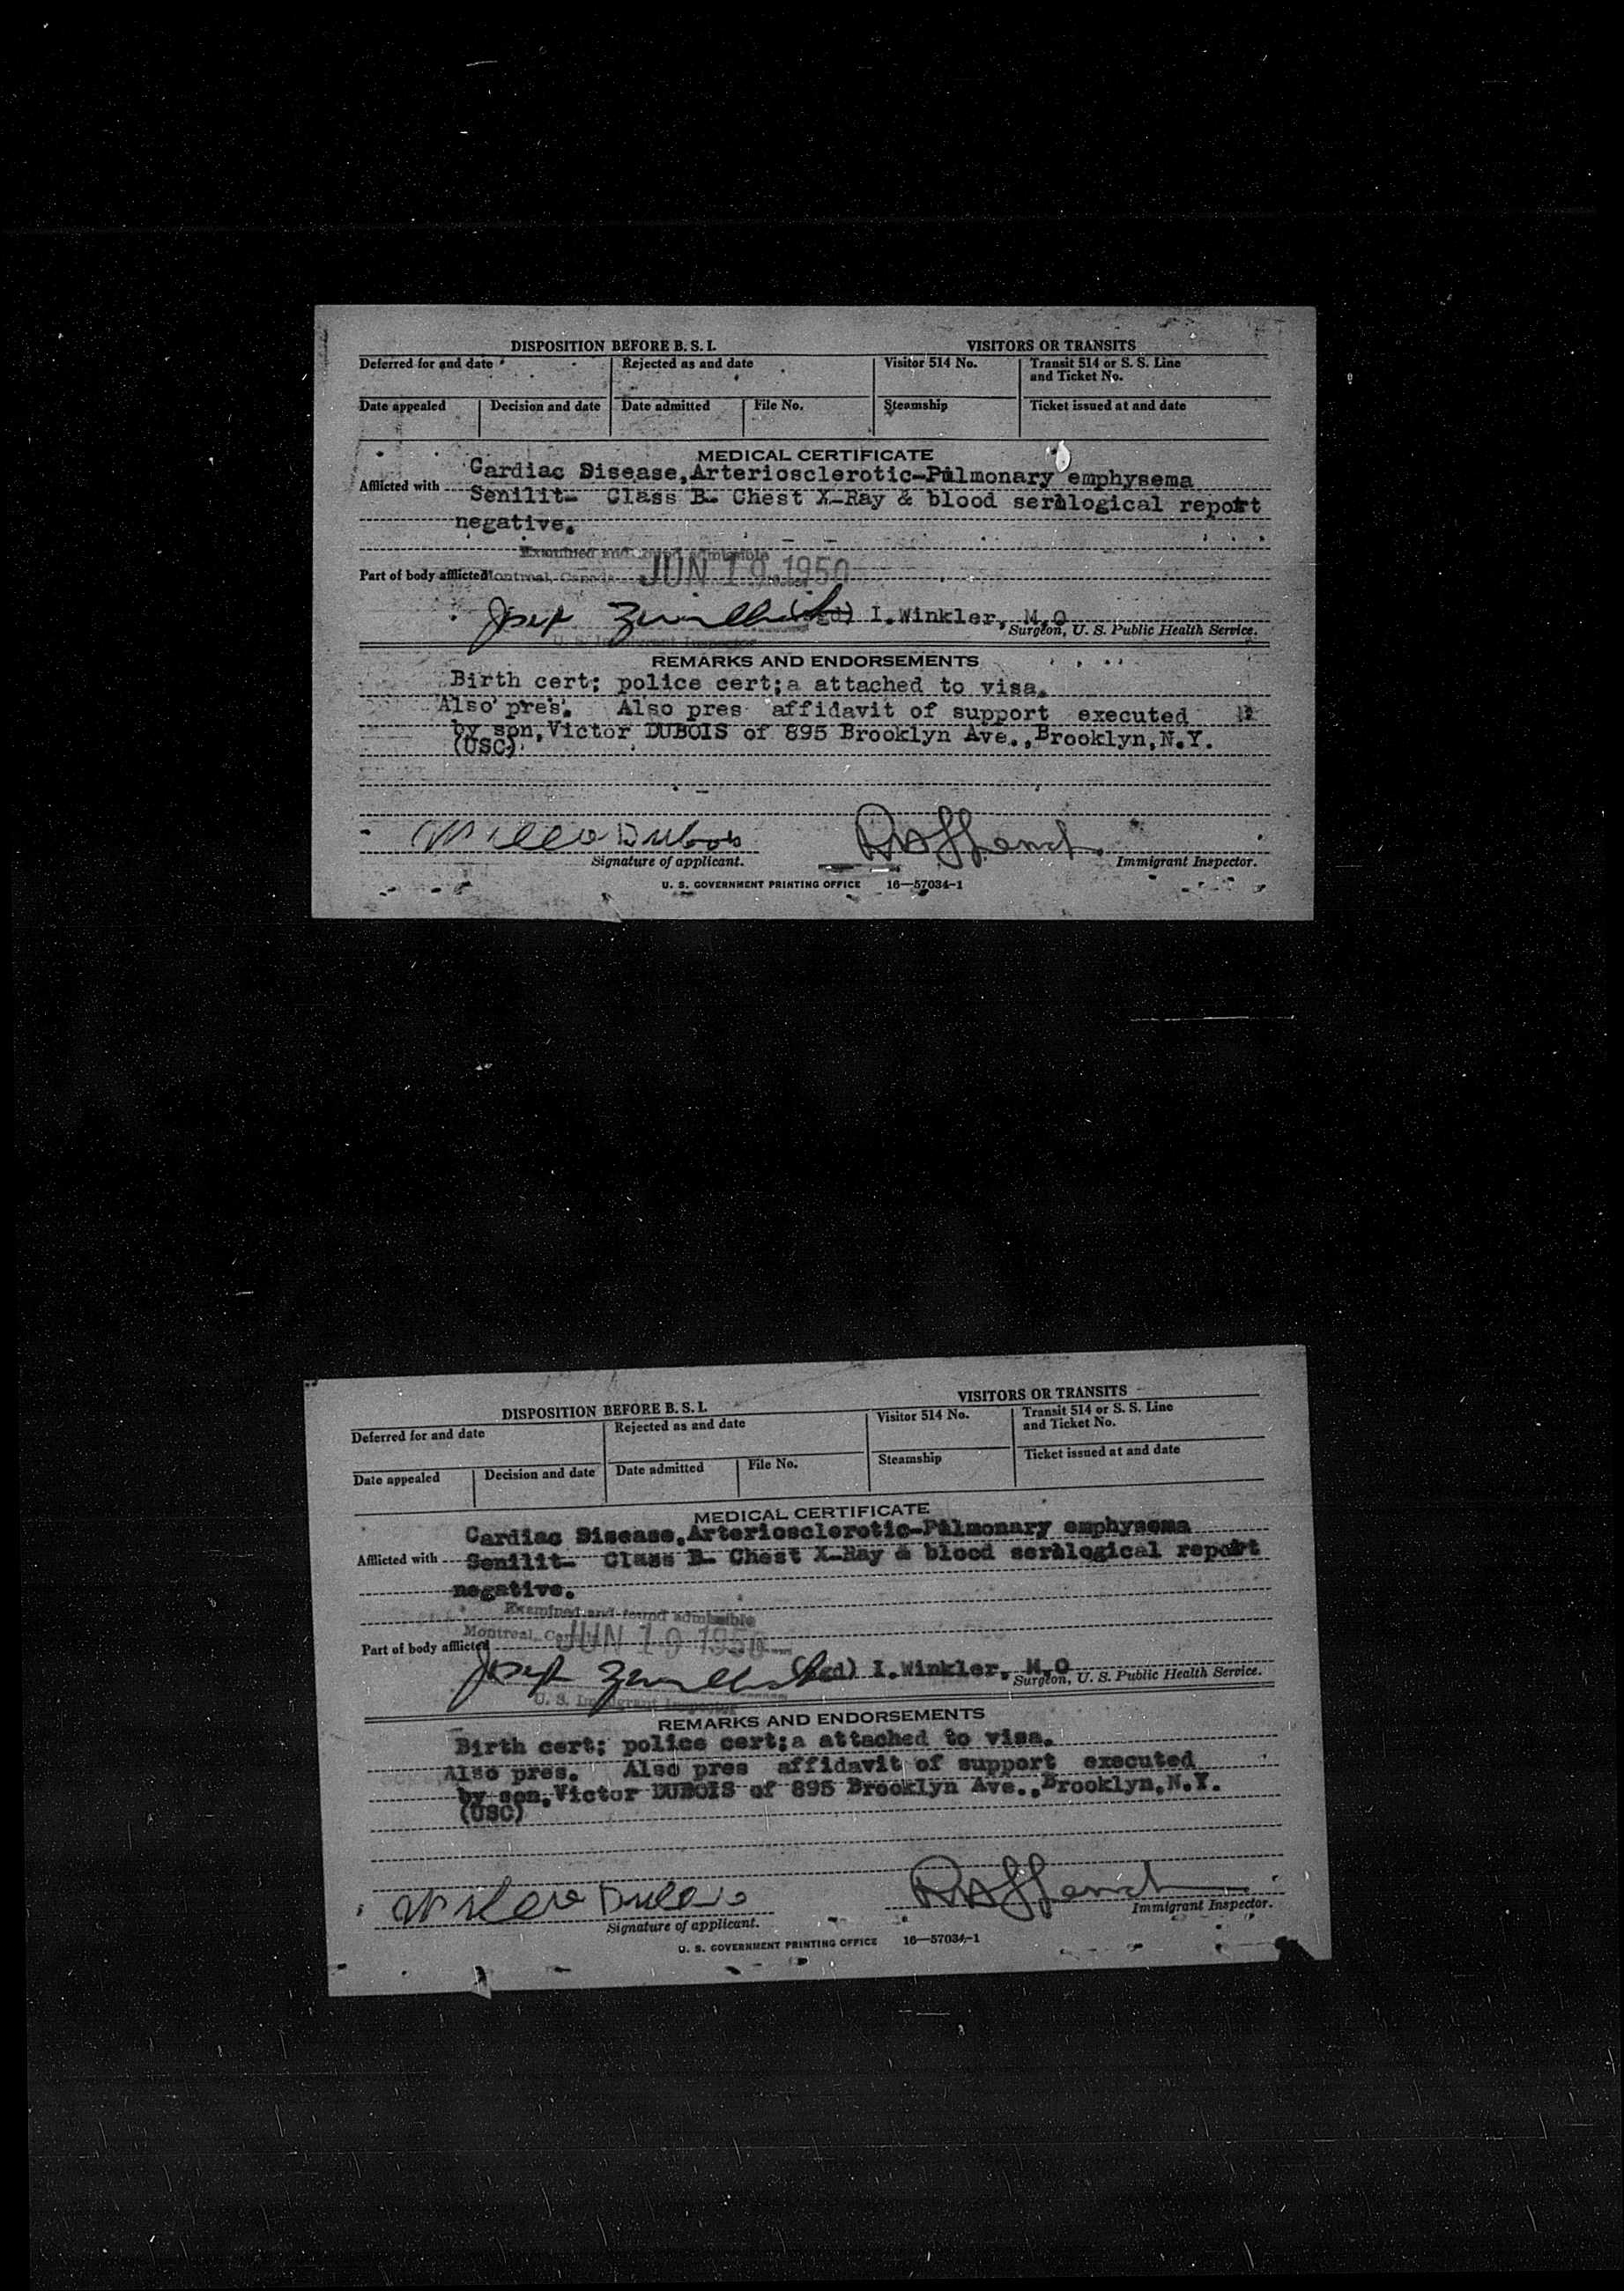 DISPOSITION BEFORE B. S. I.
VISITORS OR TRANSITS
Deferred for and date
Rejected as and date
Visitor 514 No.
Transit 514 or S. S. Line
and Ticket No.
Date appealed
Decision and date
Date admitted
File No.
Steamship
Ticket issued at and date
MEDICAL CERTIFICATE
Cardiac Disease,Arteriosclerotic-Pulmonary emphysema
Afflicted with Senilit- Class B- Chest X-Ray & blood serological report
negative.
Examined and found admissible
Part of body afflicted Montreal, Canada JUN 19 1950
Josep (sgd) I.Winkler, M.O
Surgeon, U. S. Public Health Service.
U. S. Immigrant Inspector
REMARKS AND ENDORSEMENTS
Birth cert; police cert;a attached to visa.
Also pres. Also pres affidavit of support executed
by son,Victor DUBOIS of 895 Brooklyn Ave.,Brooklyn,N.Y.
(USC)
Dubois
Signature of applicant.
Immigrant Inspector.
U. S. GOVERNMENT PRINTING OFFICE 16—57034-1
DISPOSITION BEFORE B. S. I.
VISITORS OR TRANSITS
Deferred for and date
Rejected as and date
Visitor 514 No.
Transit 514 or S. S. Line
and Ticket No.
Date appealed
Decision and date
Date admitted
File No.
Steamship
Ticket issued at and date
MEDICAL CERTIFICATE
Cardiac Disease,Arteriosclerotic-Pulmonary emphysema
Afflicted with Senilit- Class B- Chest X-Ray & blood serological report
negative.
Examined and found admissible
Montreal, Can JUN 19 1950
Part of body afflicted
Josep (sgd) I.Winkler, M.O
Surgeon, U. S. Public Health Service.
U. S. Immigrant Inspector
REMARKS AND ENDORSEMENTS
Birth cert; police cert;a attached to visa.
Also pres. Also pres affidavit of support executed
by son,Victor DUBOIS of 895 Brooklyn Ave.,Brooklyn,N.Y.
(USC)
Signature of applicant.
Immigrant Inspector.
U. S. GOVERNMENT PRINTING OFFICE 16—57034-1